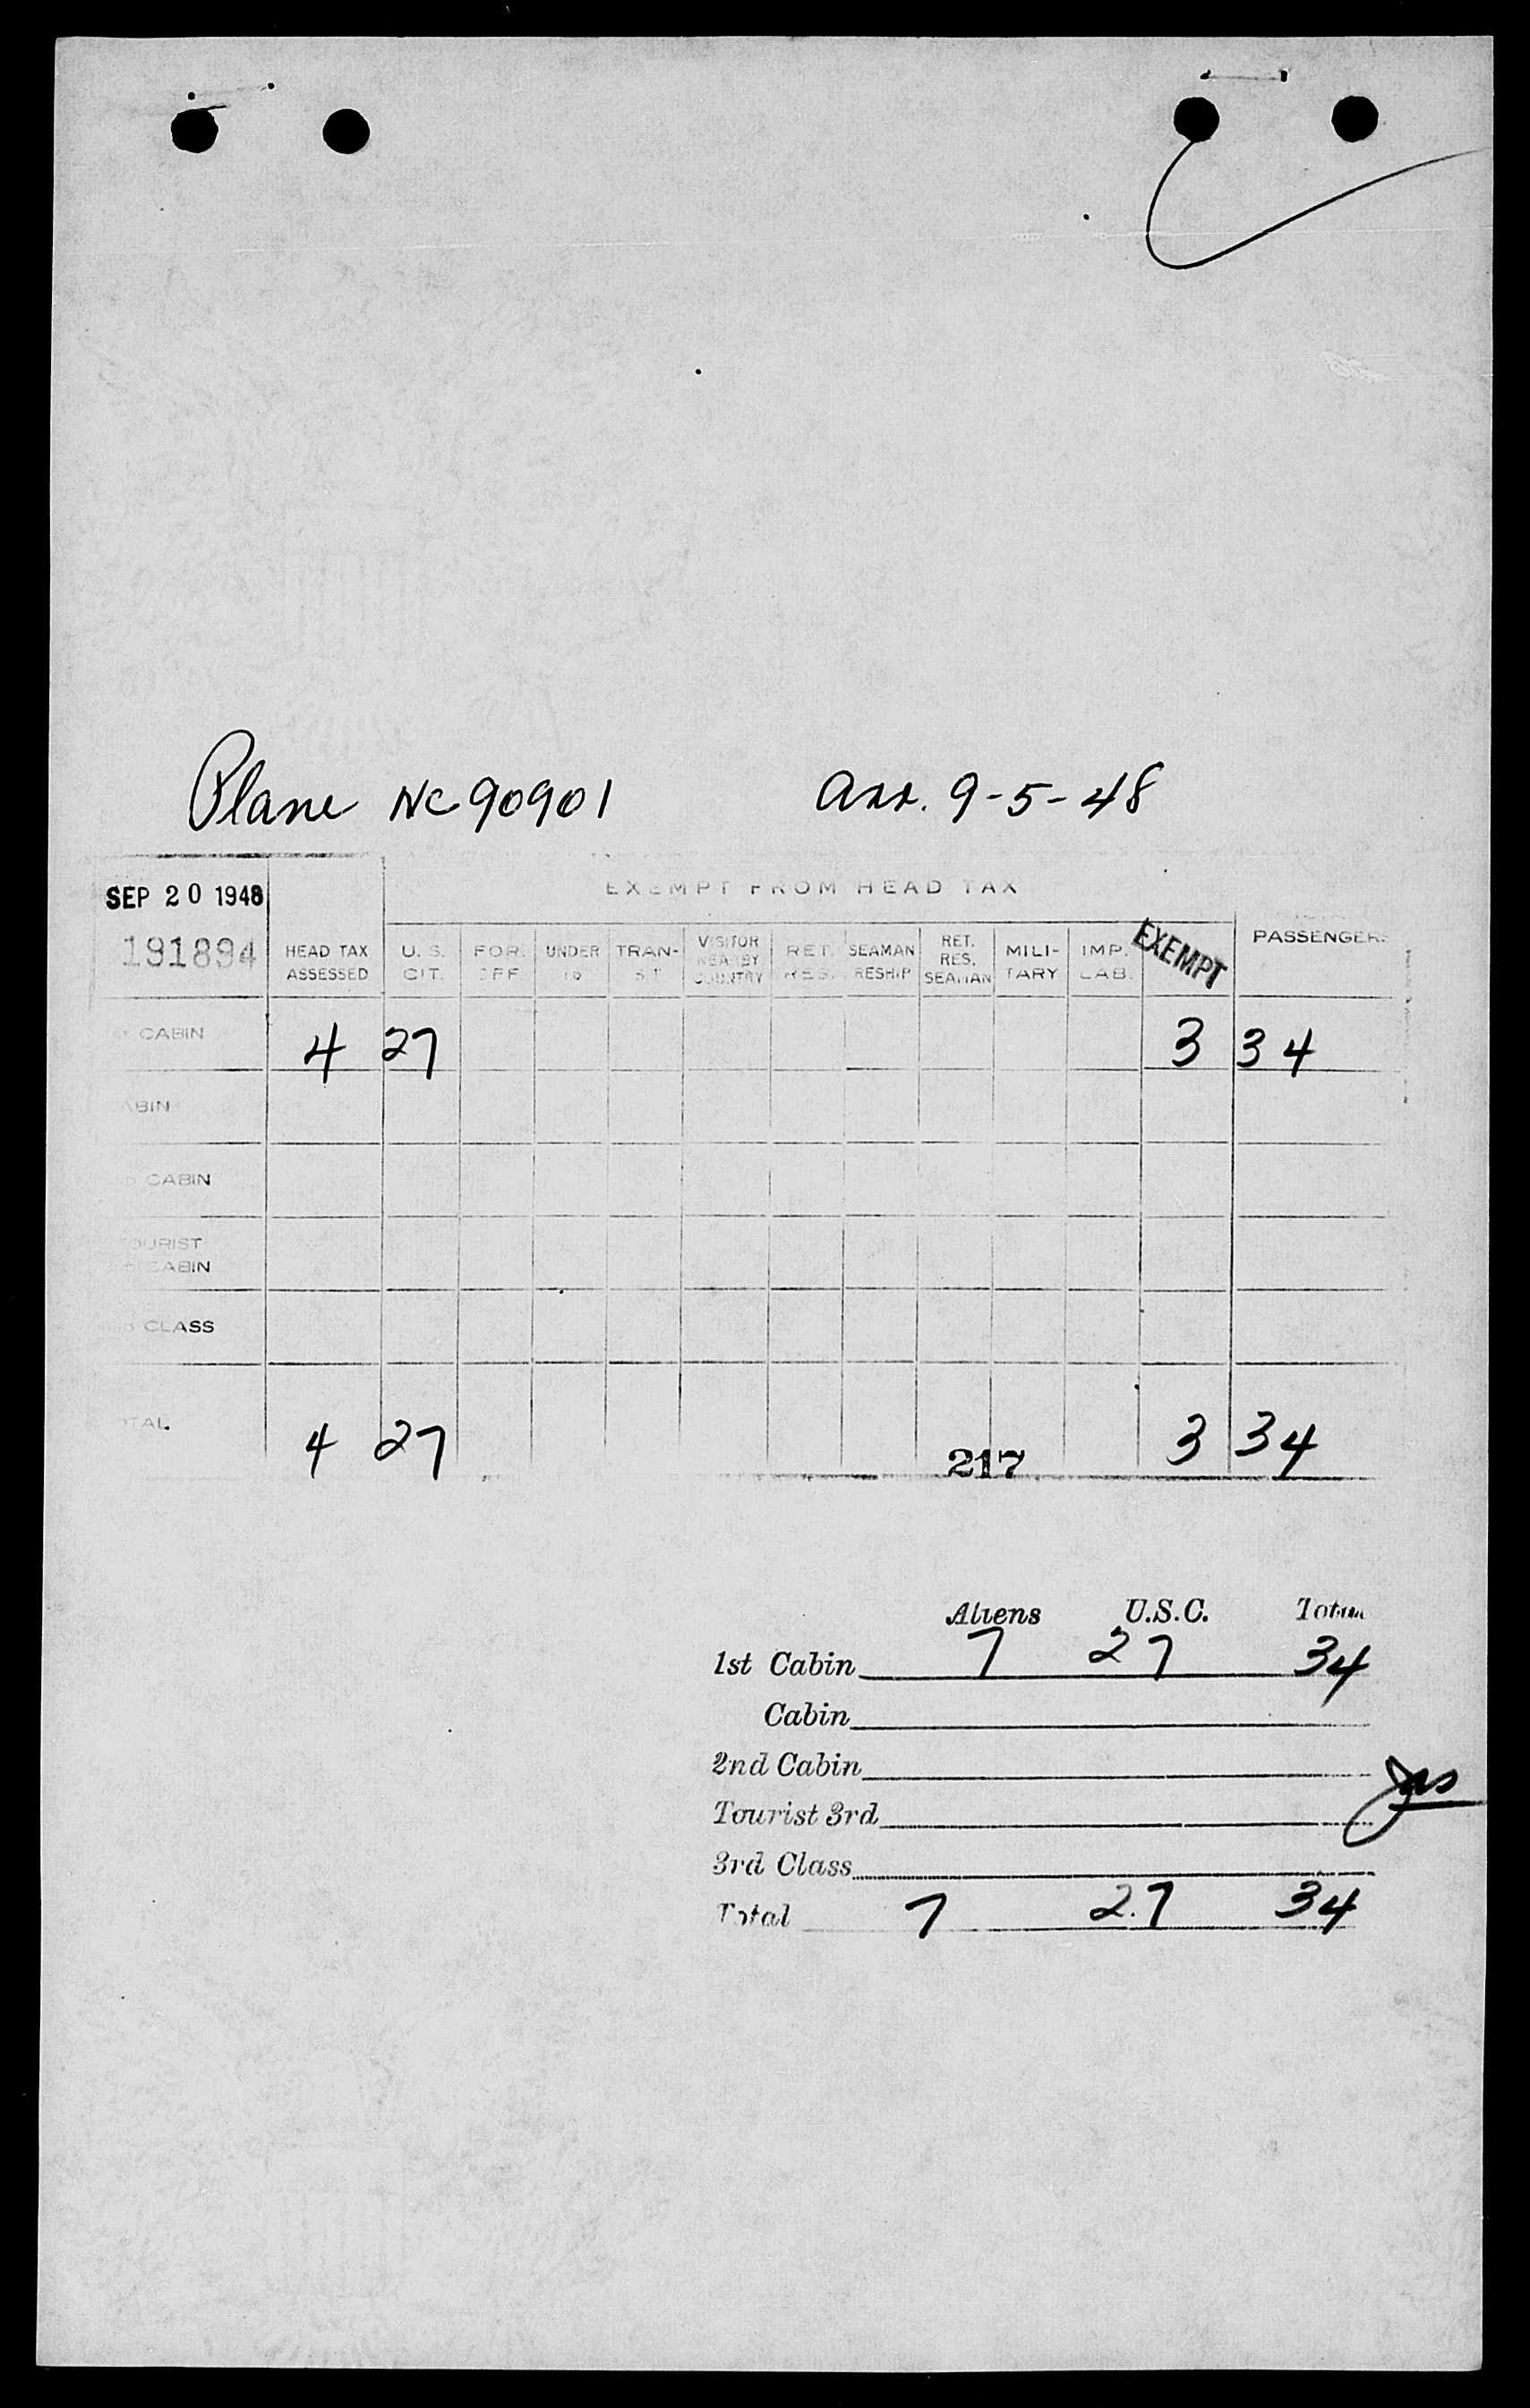 Plane NC 90901 Arr. 9-5-48
SEP 20 1948
EXEMPT FROM HEAD TAX
191894
HEAD TAX ASSESSED
U. S. CIT.
FOR. OFF.
UNDER 16
TRAN-SIT
VISITOR NEARBY COUNTRY
RET. RES.
SEAMAN RESHIP
RET. RES. SEAMAN
MILI-TARY
IMP. LAB.
EXEMPT
PASSENGERS
CABIN 4 27 3 34
CABIN
CABIN
TOURIST
CABIN
CLASS
TOTAL 4 27 3 34
217
Aliens U.S.C. Total
1st Cabin 7 27 34
Cabin
2nd Cabin
Tourist 3rd
3rd Class
Total 7 27 34